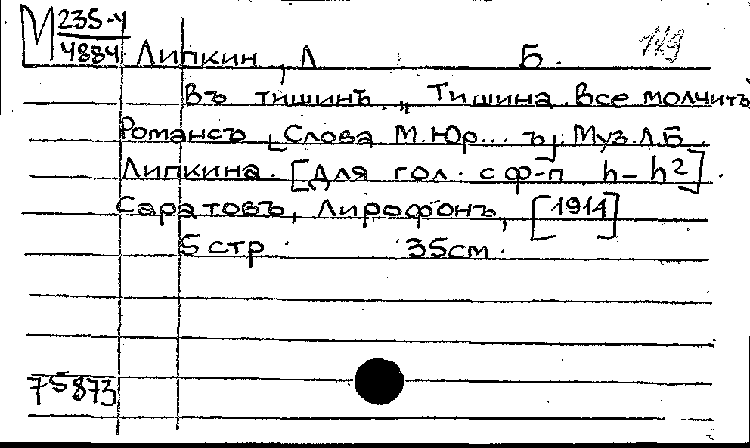 М 235-4
4884 Липкин, Л Б.
119
Въ тишинѣ. „Тишина. Все молчитъ
Романсъ [Слова М. Юр...ъ]. Муз. Л.Б.
Липкина. [Для гол. с ф-п h-h²].
Саратовъ, Лирофонъ, [1914]
5 стр. 35см.
75873